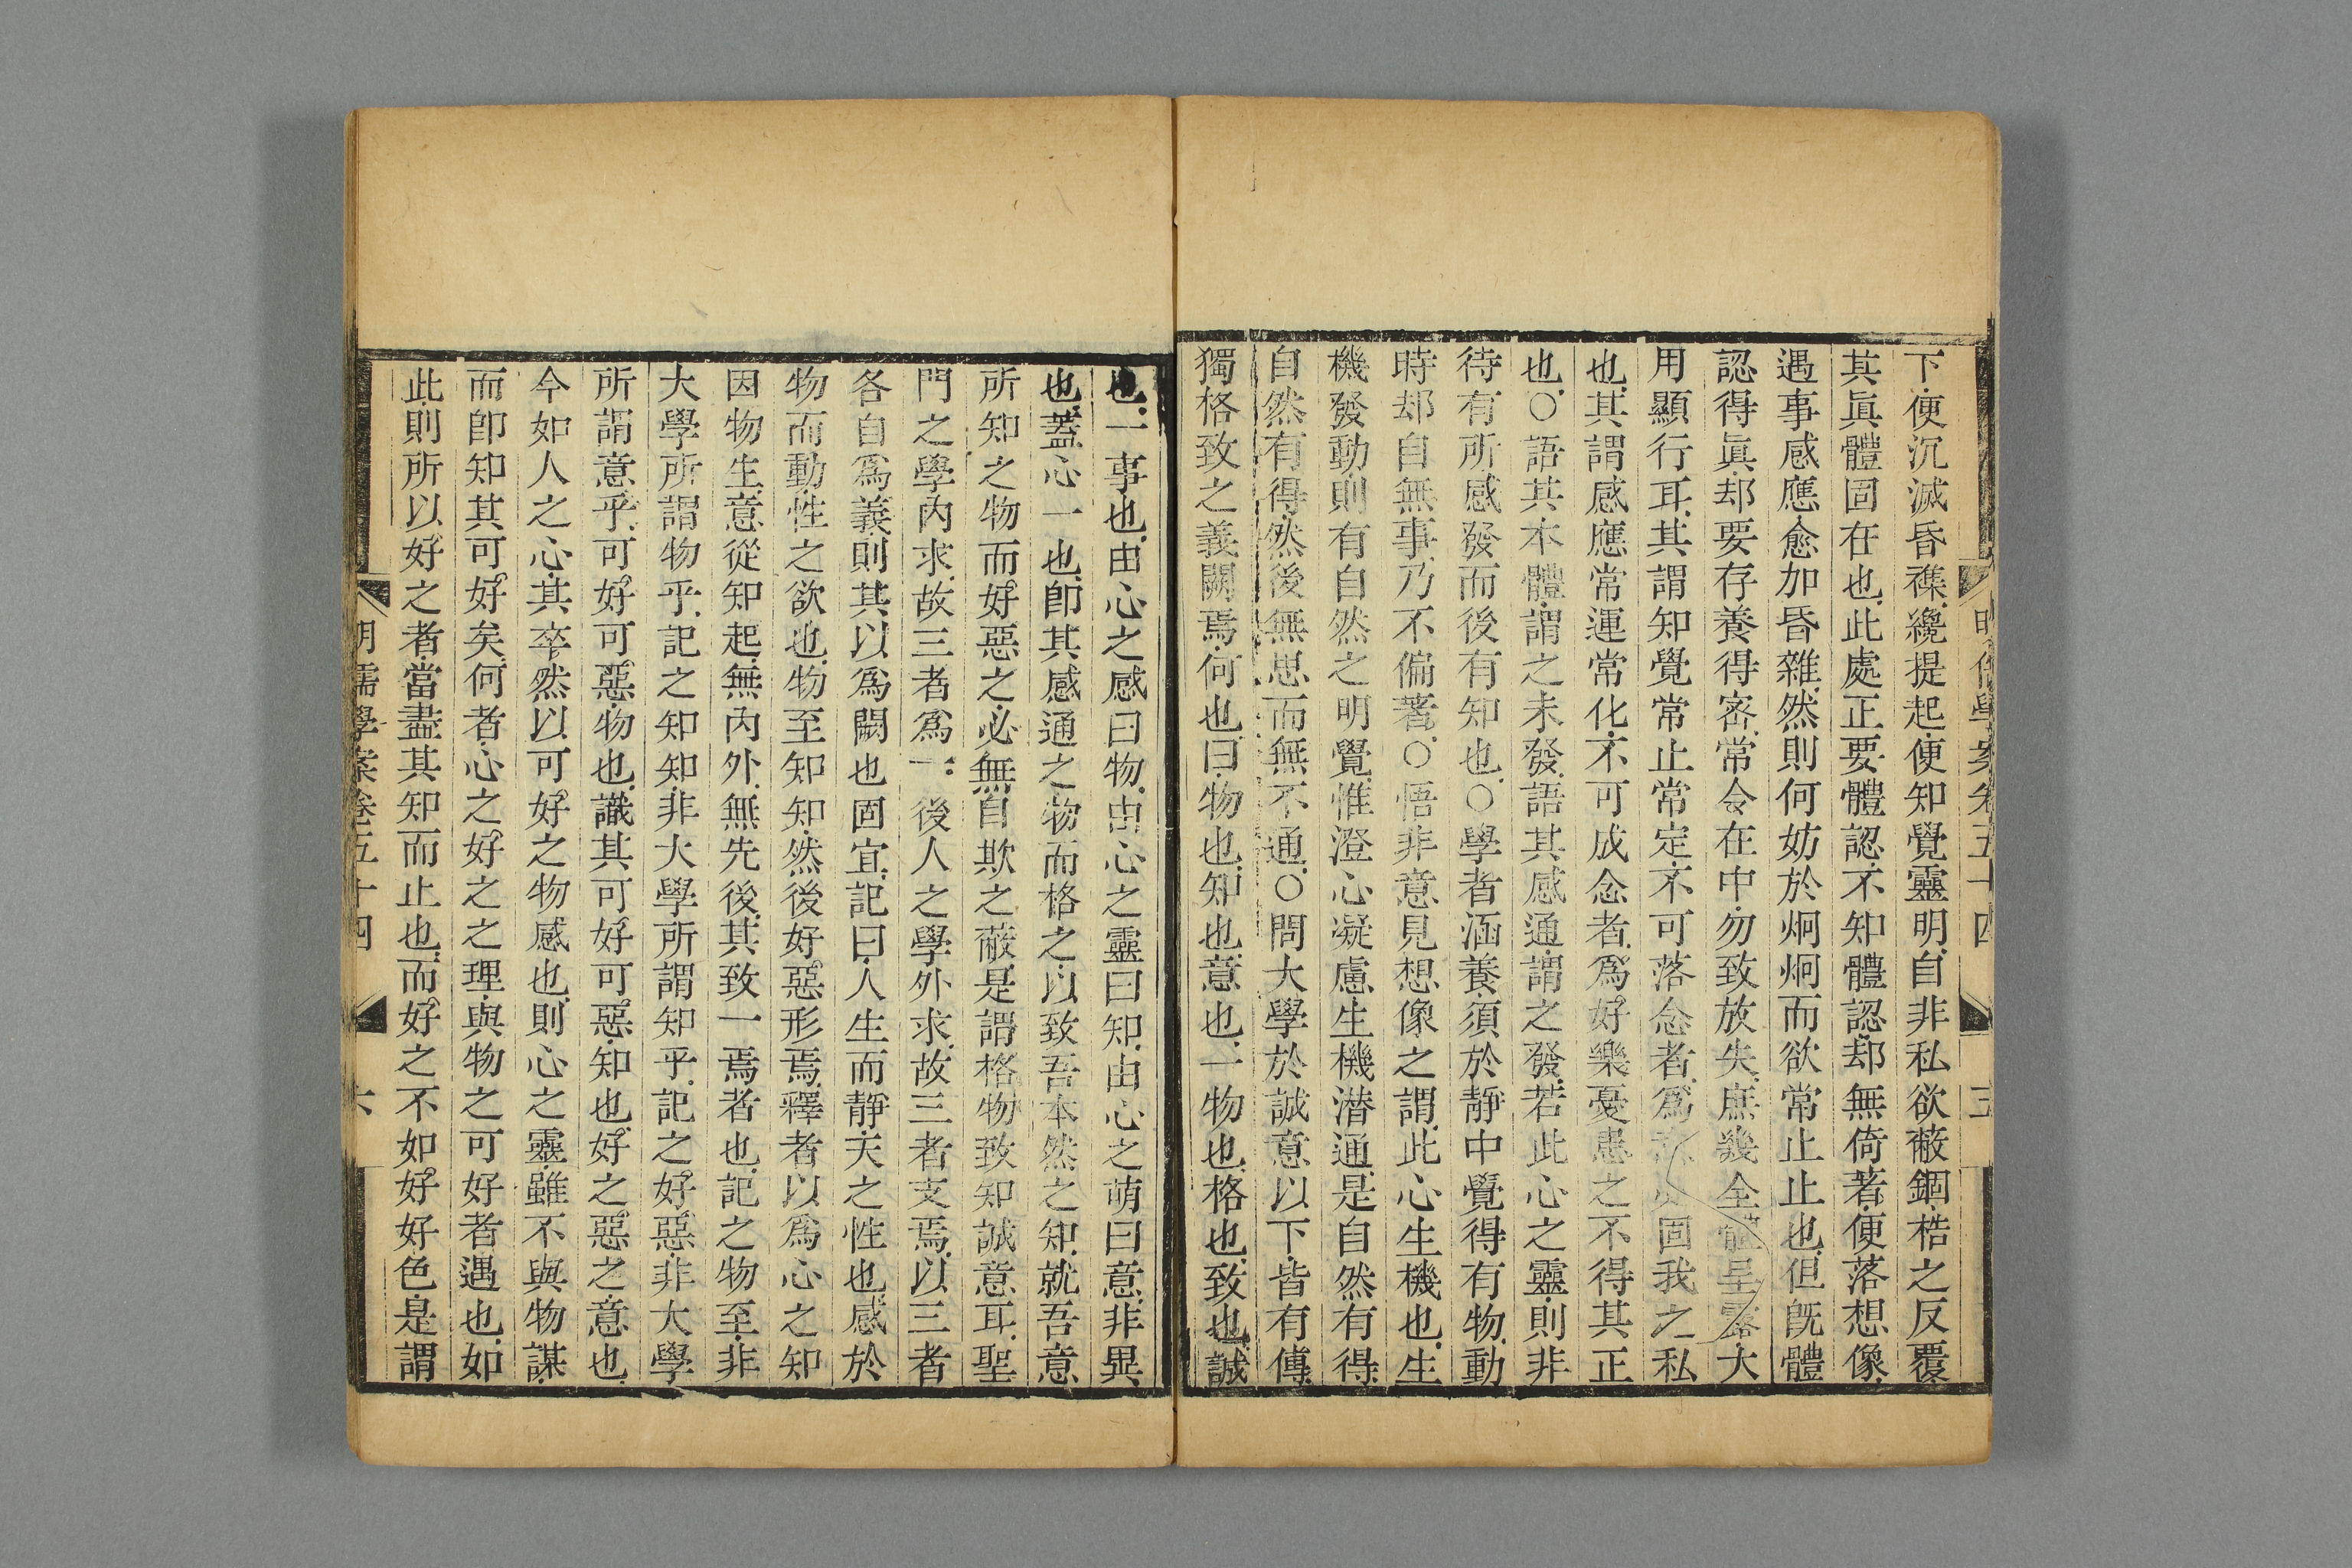 下便沉滅昏襍纔提起便知覺靈明自非私欲蔽錮梏之反覆
其眞體固在也此處正要體認不知體認却無倚著便落想像
遇事感應愈加昏雜然則何妨於炯炯而欲常止止也但旣體
認得眞却要存養得密常令在中勿致放失庶幾全體呈露大
用顯行耳其謂知覺常止常定不可落念者爲意必固我之私
也其謂感應常運常化不可成念者爲好樂憂患之不得其正
也○語其本體謂之未發語其感通謂之發若此心之靈則非
待有所感發而後有知也○學者涵養須於靜中覺得有物動
時却自無事乃不偏著○悟非意見想像之謂此心生機也生
機發動則有自然之明覺惟澄心凝慮生機潜通是自然有得
自然有得然後無思而無不通○問大學於誠意以下皆有傳
獨格致之義闕焉何也曰物也知也意也一物也格也致也誠
也一事也由心之感曰物由心之靈曰知由心之萌曰意非異
也蓋心一也卽其感通之物而格之以致吾本然之知就吾意
所知之物而好惡之必無自欺之蔽是謂格物致知誠意耳聖
門之學內求故三者爲一後人之學外求故三者支焉以三者
各自爲義則其以爲闕也固宜記曰人生而靜天之性也感於
物而動性之欲也物至知知然後好惡形焉釋者以爲心之知
因物生意從知起無內外無先後其致一焉者也記之物至非
大學所謂物乎記之知知非大學所謂知乎記之好惡非大學
所謂意乎可好可惡物也識其可好可惡知也好之惡之意也
今如人之心其卒然以可好之物感也則心之靈雖不與物謀
而卽知其可好矣何者心之好之之理與物之可好者遇也如
此則所以好之者當盡其知而止也而好之不如好好色是謂
明儒學案卷五十四
六